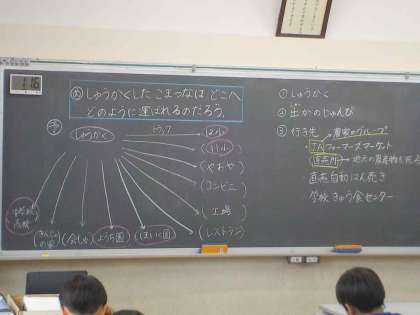 しゅうかくした こまつなは どこへ
どのように運ばれるのだろう。
予
しゅうかく
トラック
(やおや)
(コンビニ)
(工場)
(レストラン)
(会しゃ)
(ようち園)
(ほいく園)
① しゅうかく
② 出かのじゅんび
③ 行き先
農家のグループ
・JAファーマーズマーケット
・直売所→地元の農産物を売る
・直売自動はん売き
・学校きゅう食センター